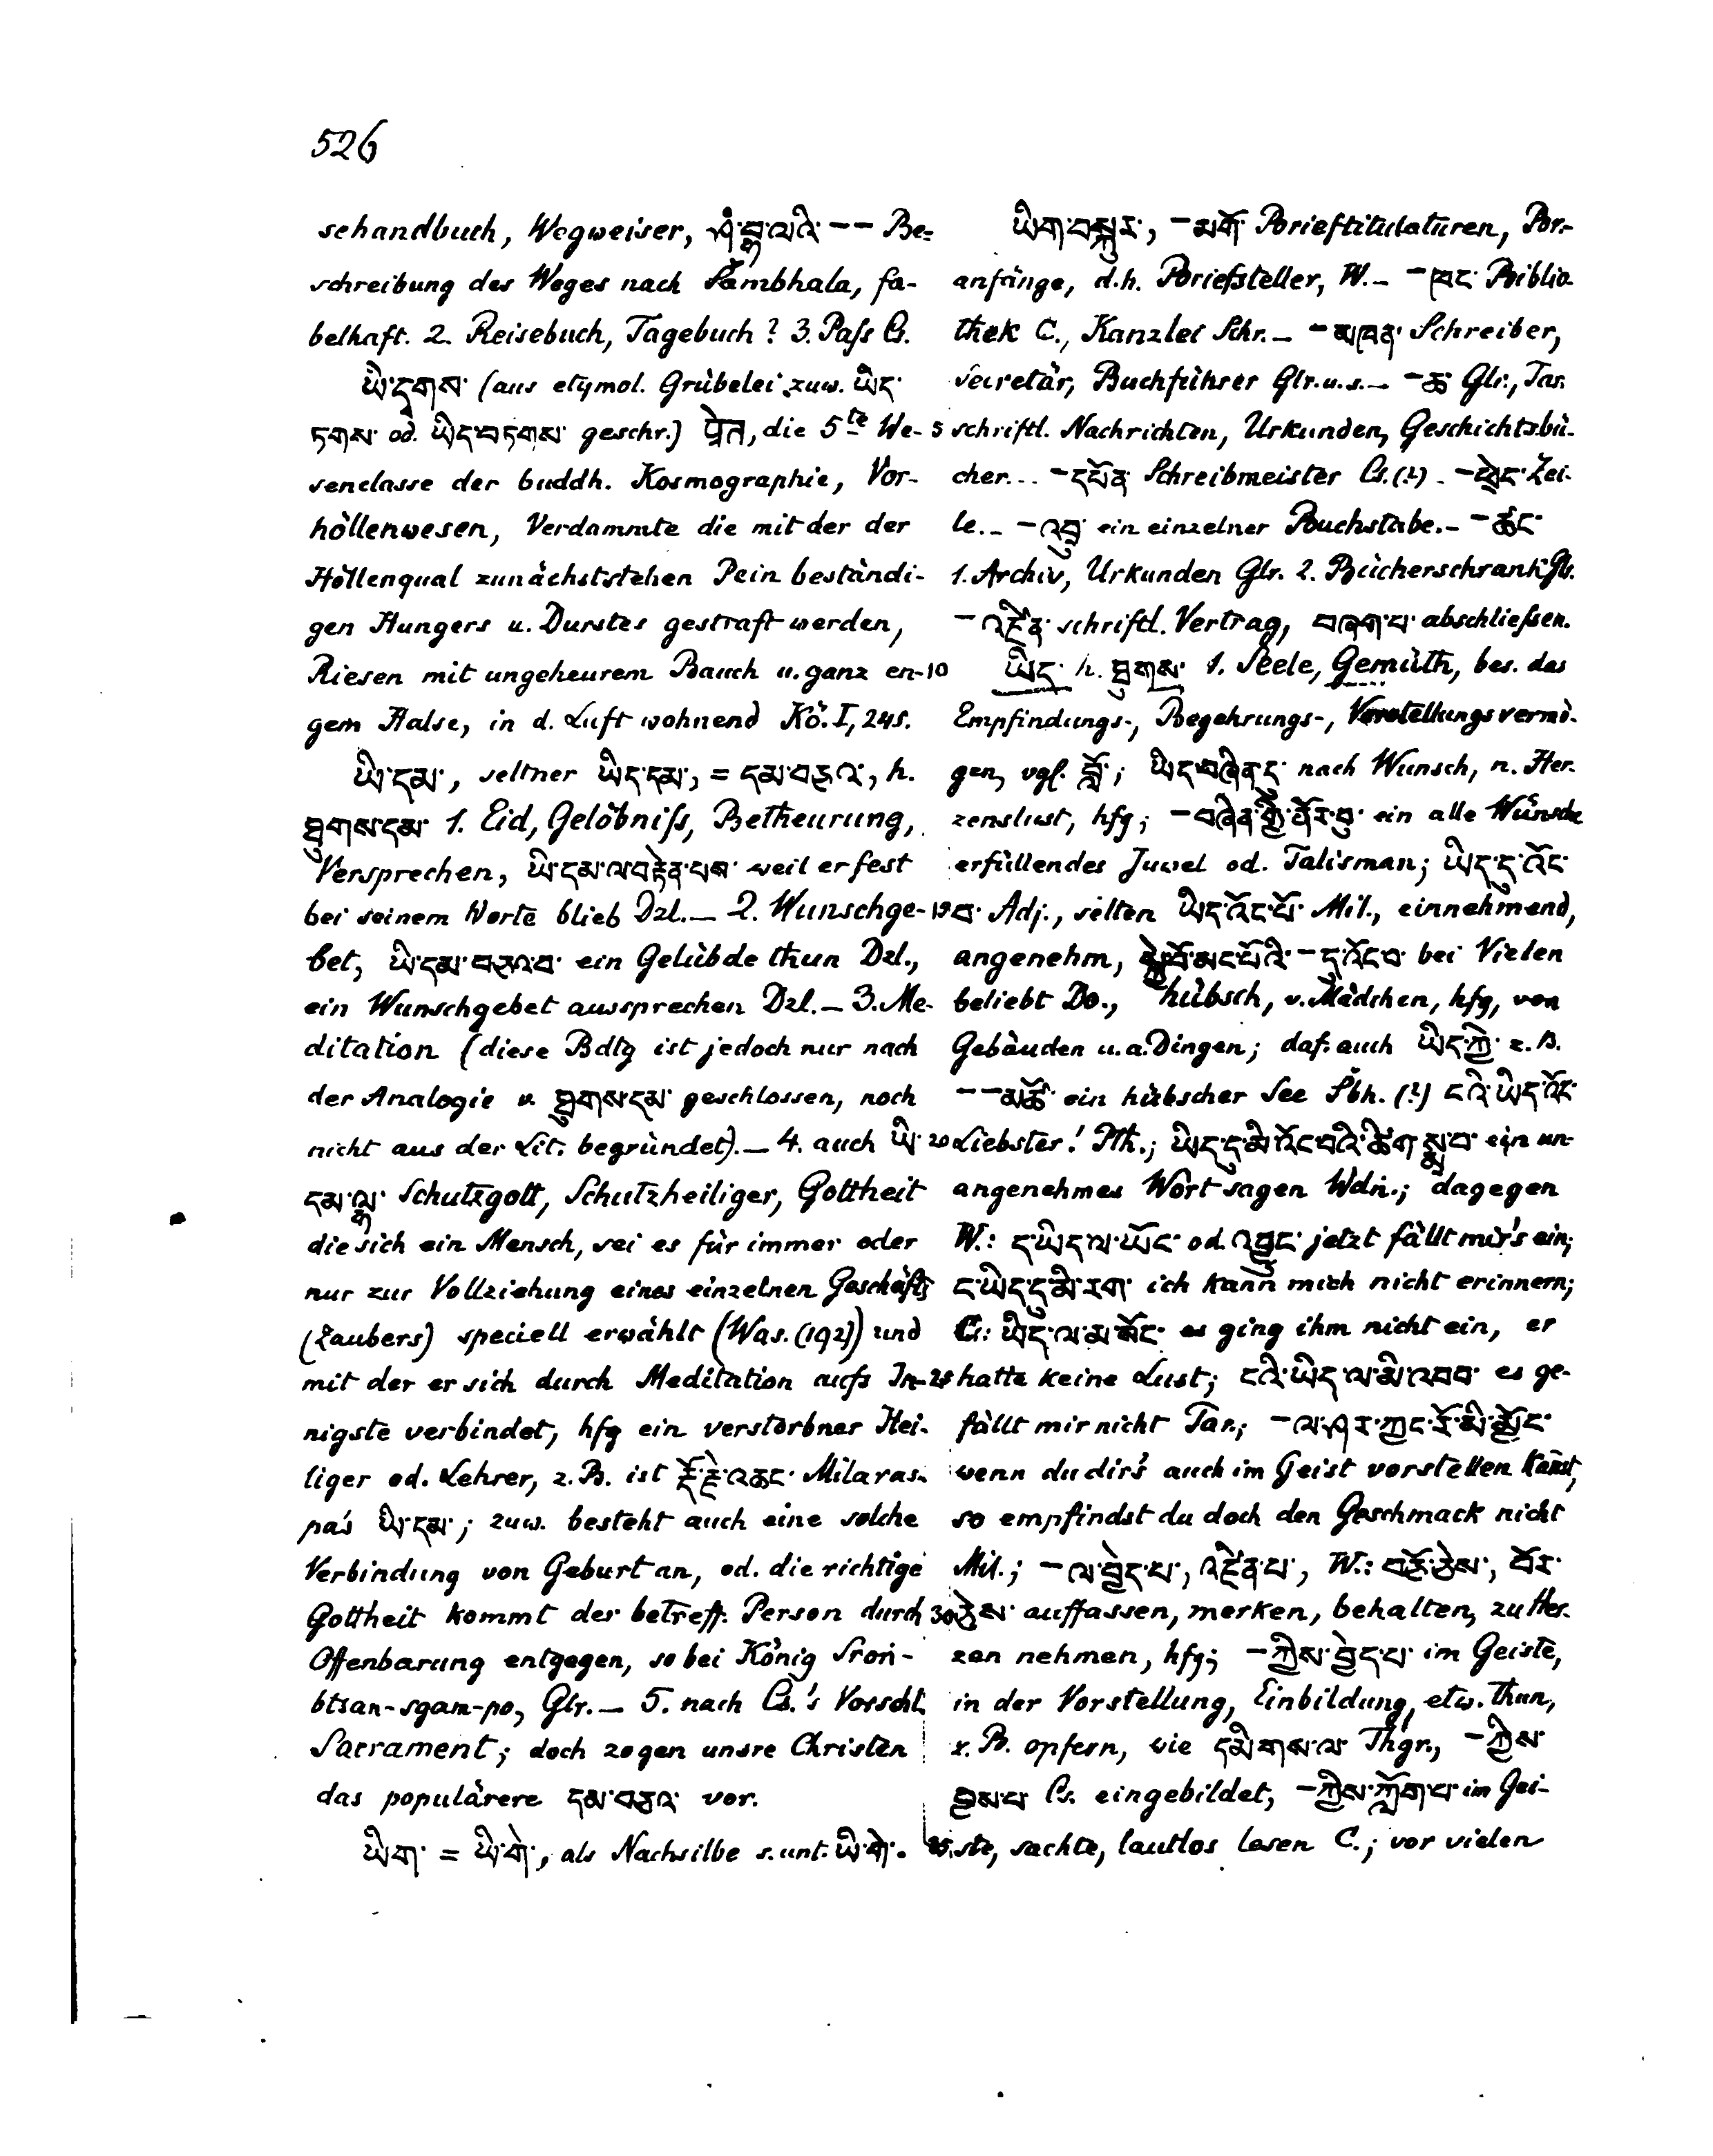 526
sehandbuch, Wegweiser, ཤཾ་བྷ་ལའི་ -- Be=
schreibung des Weges nach Šambhala, fa-
belhaft. 2. Reisebuch, Tagebuch? 3. Paſs Cs.
ཡི་དྭགས་ (aus etymol. Grübelei zuw. ཡིད་
ཏགས་ od. ཡིད་བཏགས་ geschr.) प्रेत, die 5te We-
senclasse der buddh. Kosmographie, Vor-
höllenwesen, Verdammte die mit der der
Höllenqual zunächststehen Pein beständi-
gen Hungers u. Durstes gestraft werden,
Riesen mit ungeheurem Bauch u. ganz en-
gem Halse, in d. Luft wohnend Kö. I, 245.
ཡི་དམ་, seltner ཡིད་དམ་, = དམ་བཅའ་, h.
ཐུགས་དམ་ 1. Eid, Gelöbniſs, Betheurung,
Versprechen, ཡི་དམ་ལ་བརྟེན་པས་ weil er fest
bei seinem Worte blieb Dzl. — 2. Wunschge-
bet, ཡི་དམ་བཅའ་བ་ ein Gelübde thun Dzl.,
ein Wunschgebet aussprechen Dzl. — 3. Me-
ditation (diese Bdtg ist jedoch nur nach
der Analogie v. ཐུགས་དམ་ geschlossen, noch
nicht aus der Lit. begründet). — 4. auch ཡི་
དམ་ལྷ་ Schutzgott, Schutzheiliger, Gottheit
die sich ein Mensch, sei es für immer oder
nur zur Vollziehung eines einzelnen Geschäfts
(Zaubers) speciell erwählt (Was. (192)) und
mit der er sich durch Meditation aufs In-
nigste verbindet, hfg ein verstorbner Hei-
liger od. Lehrer, z. B. ist རྡོ་རྗེ་འཆང་ Milaras-
pa's ཡི་དམ་; zuw. besteht auch eine solche
Verbindung von Geburt an, od. die richtige
Gottheit kommt der betreff. Person durch
Offenbarung entgegen, so bei König Sroṅ-
btsan-sgam-po, Glr. — 5. nach Cs.'s Vorschl.
Sacrament; doch zogen unsre Christen
das populärere དམ་བཅའ་ vor.
ཡིག་ = ཡི་གེ་, als Nachsilbe s. unt. ཡི་གེ་.
ཡིག་བསྐུར་, -མགོ་ Brieftitulaturen, Br.-
anfänge, d.h. Briefsteller, W. – -ཁང་ Biblio-
thek C., Kanzlei Schr. – -མཁན་ Schreiber,
Secretär, Buchführer Glr. u. s. – -ཆ་ Glr., Tar.
5 schriftl. Nachrichten, Urkunden, Geschichtsbü-
cher. – -དཔོན་ Schreibmeister Cs. (?) – -ཕྲེང་ Zei-
le. – -འབྲུ་ ein einzelner Buchstabe. – -ཚང་
1. Archiv, Urkunden Glr. 2. Bücherschrank Glr.
-འཛིན་ schriftl. Vertrag, བཞག་པ་ abschlieſsen.
10 ཡིད་ h. ཐུགས་ 1. Seele, Gemüth, bes. das
Empfindungs-, Begehrungs-, Vorstellungsvermö-
gen, vgl. བློ་; ཡིད་བཞིན་དུ་ nach Wunsch, n. Her-
zenslust, hfg; -བཞིན་གྱི་ནོར་བུ་ ein alle Wünsche
erfüllendes Juwel od. Talisman; ཡིད་དུ་འོང་
15 བ་ Adj., selten ཡིད་འོང་པོ་ Mil., einnehmend,
angenehm, སྐྱེ་བོ་མང་པོའི་-དུ་འོང་བ་ bei Vielen
beliebt Do., hübsch, v. Mädchen, hfg, von
Gebäuden u. a. Dingen; daf. auch ཡིད་ཀྱི་ z. B.
--མཚོ་ ein hübscher See Šbh. (?) ངའི་ཡིད་འོང་
20 Liebster! Pth.; ཡིད་དུ་མི་འོང་བའི་ཚིག་སྨྲ་བ་ ein un-
angenehmes Wort sagen Wdn.; dagegen
W.: ད་ཡིད་ལ་ཡོང་ od. འབྱུང་ jetzt fällt mir's ein;
ང་ཡིད་དུ་མི་རག་ ich kann mich nicht erinnern;
Cs.: ཡིད་ལ་མ་སོང་ es ging ihm nicht ein, er
25 hatte keine Lust; ངའི་ཡིད་ལ་མི་འབབ་ es ge-
fällt mir nicht Tar.; -ལ་ཤར་ཀྱང་རོ་མི་མྱོང་
wenn du dir's auch im Geist vorstellen kannst,
so empfindst du doch den Geschmack nicht
Mil.; -ལ་བྱེད་པ་, འཛིན་པ་, W.: བཅོ་ཅེས་, བོར་
30 ཅེས་ auffassen, merken, behalten, zu Her-
zen nehmen, hfg; -ཀྱིས་བྱེད་པ་ im Geiste,
in der Vorstellung, Einbildung, etw. thun,
z. B. opfern, wie དམིགས་ལ་ Thgr., -ཀྱིས་
བྱས་པ་ Cs. eingebildet, -ཀྱིས་ཀློག་པ་ im Gei-
35 ste, sachte, lautlos lesen C.; vor vielen